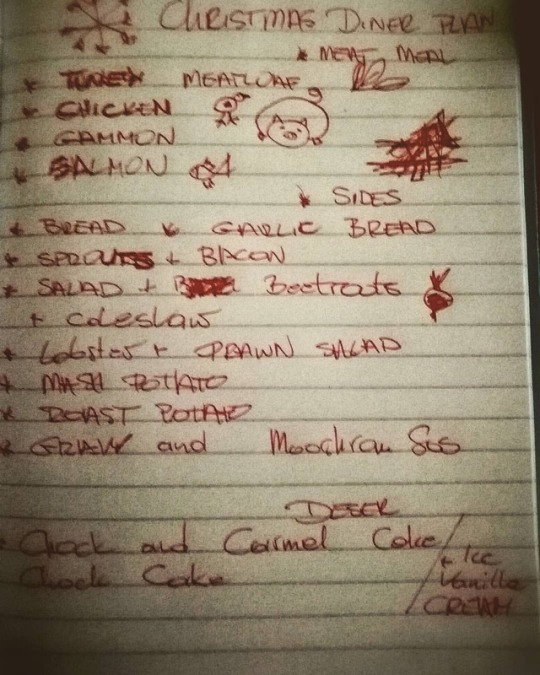 CHRISTMAS DINER PLAN
* MEAT MEAL
* MEATLOAF
* CHICKEN
* GAMMON
* SALMON
* SIDES
* BREAD * GARLIC BREAD
* SPROUTS + BACON
* SALAD + Beetroots
+ coleslaw
* Lobster + PRAWN SALAD
* MASH POTATO
* ROAST POTATO
* and
Chock and Carmel Cake
Chock Cake
+ Ice
Vanilla
CREAM